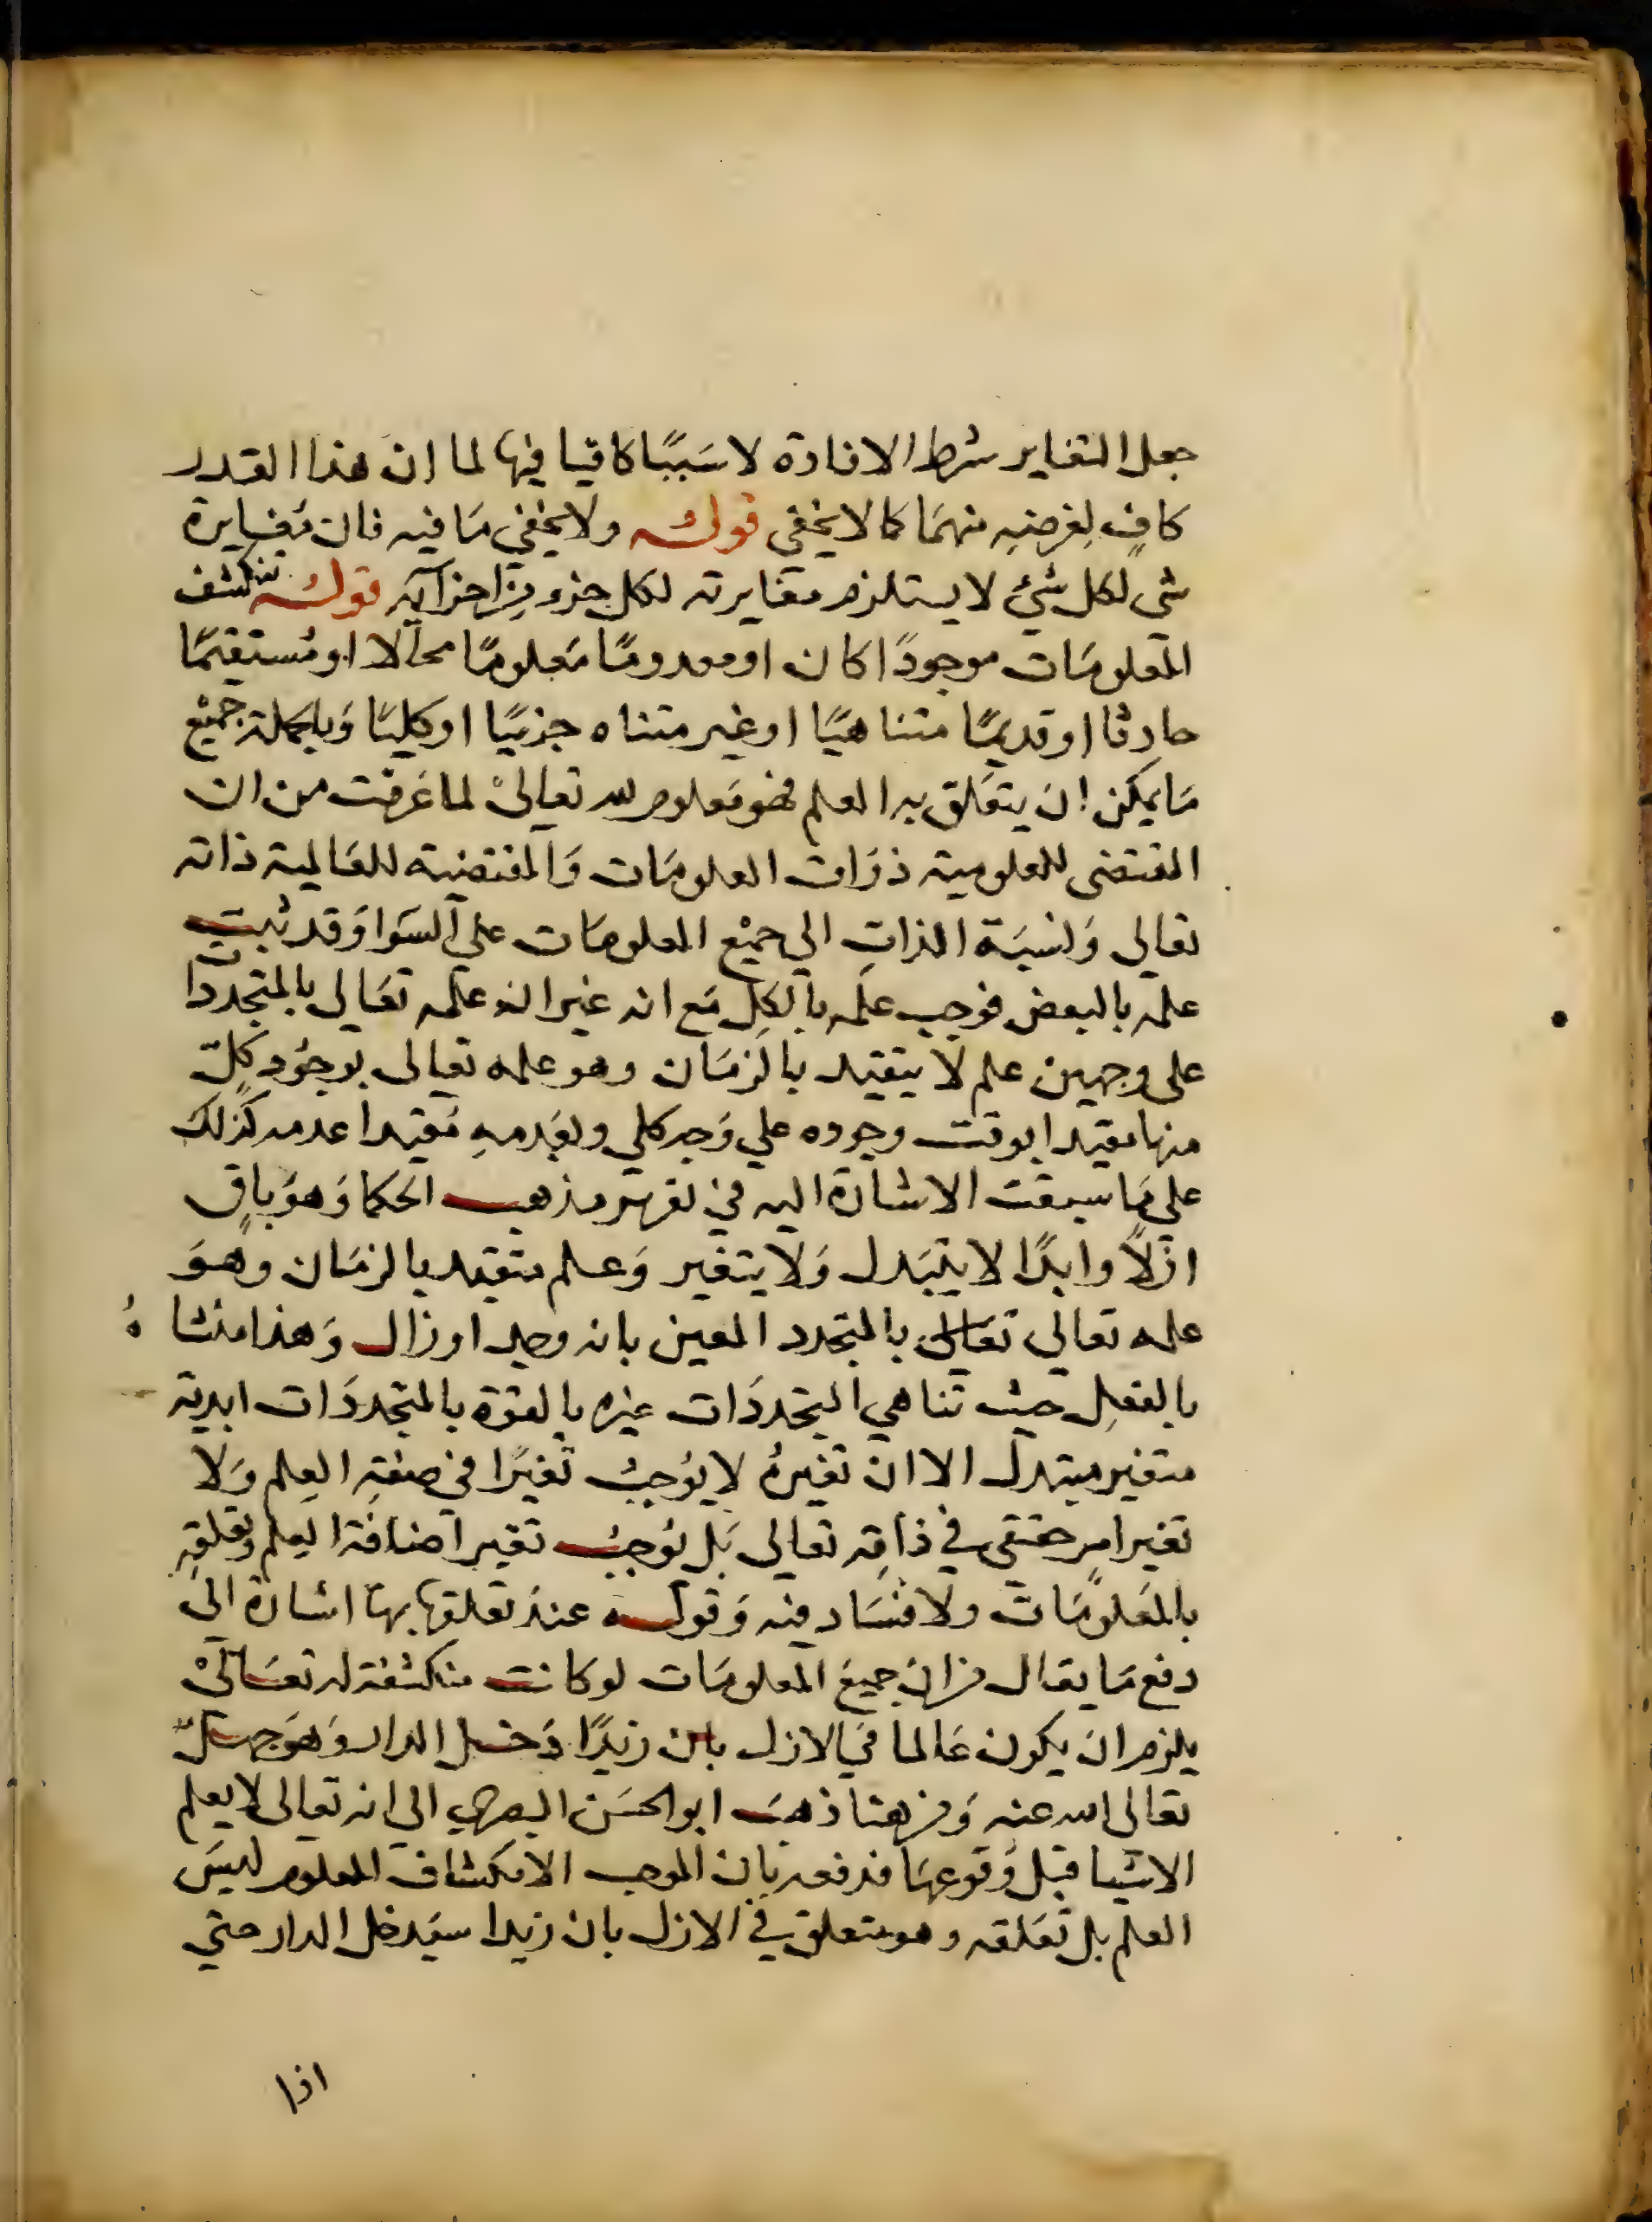 جعل التغاير شرط الافادة لا سَببًا كافيا فيها لما ان هذا القدر
كافٍ لغرضِهِ منهمَا كما لا يخفى قولـه ولا يخفي مَا فيه فان مُغايرة
شي لكل شئ لا يستلزم مغايرته لكل جزء مِن اجزآيه قولـه تنكشف
المعلومَات موجودًا كان او معدومًا مَعلومًا محالا او مُستقيمًا
حادثا او قديمًا متناهيًا او غير متناه جزئيًا او كليًا وَبالجملة جميْع
مَا يمكن ان يتعَلق به العلم فهو مَعلوم لله تعاليْ لما عَرفت من ان
المقتضى للمعلومية ذوَات المعلومَات وَالمقتضية للعَالمية ذاته
تعالى وَنسبَة الذاتِ الى جميْع المعلومَات علي السَوا وَقد ثبت
علمه بالبعض فوجب علمه بالكل مَع انه غير انه علمه تعَالى بالمتجددات
على وجهين علم لا يتقيد بالزمَان وهو علمه تعالى بوجُود كلّ
منها مقيدا بوقت وجوده علي وَجه كلي وبعَدمهِ مُقيدا عدمه كذلك
علي مَا سبقت الاشارة اليه في تقرير مذهب الحكما وَهوَ باقٍ
ازلاً وابدًا لا يتبَدل وَلا يتغير وَعلم متقيد بالزمَان وهوَ
علمه تعالى تعَالى بالمتجدد المعين بانه وجد او زال وَهذا متناهٍ
بالفعلِ حيث تناهي المتجددَات غيره بالقوة بالمتجددَات ابدية
متغير مبتدل الا ان تغيرهُ لا يوُجبُ تغيرًا في صفة العِلم وَلا
تغير امرٍ حقيقي في ذاته تعالى بَل يوُجبُ تغير اضافة العِلم وتعلقهِ
بالمَعلومَات ولا فسَاد فيه وَقولـه عندَ تعلقها بهَا اشارة الى
دفع مَا يقال من ان جميعَ المعلومَات لو كانت منكشفة له تعَاليْ
يلزم ان يكون عَالما في الازل بان زيدًا دَخل الدار وَهوَ جهـل
تعالى الله عنه وَمن هنا ذهبَ ابو الحسَن البصري الى انه تعالى لا يعلم
الاشيا قبل وُقوعهَا فدفعه بان الموجب الانكشاف المعلوم ليسَ
العلم بل تعَلقه وهو متعلق في الازل بان زيدا سيَدخل الدار حتي
اذا